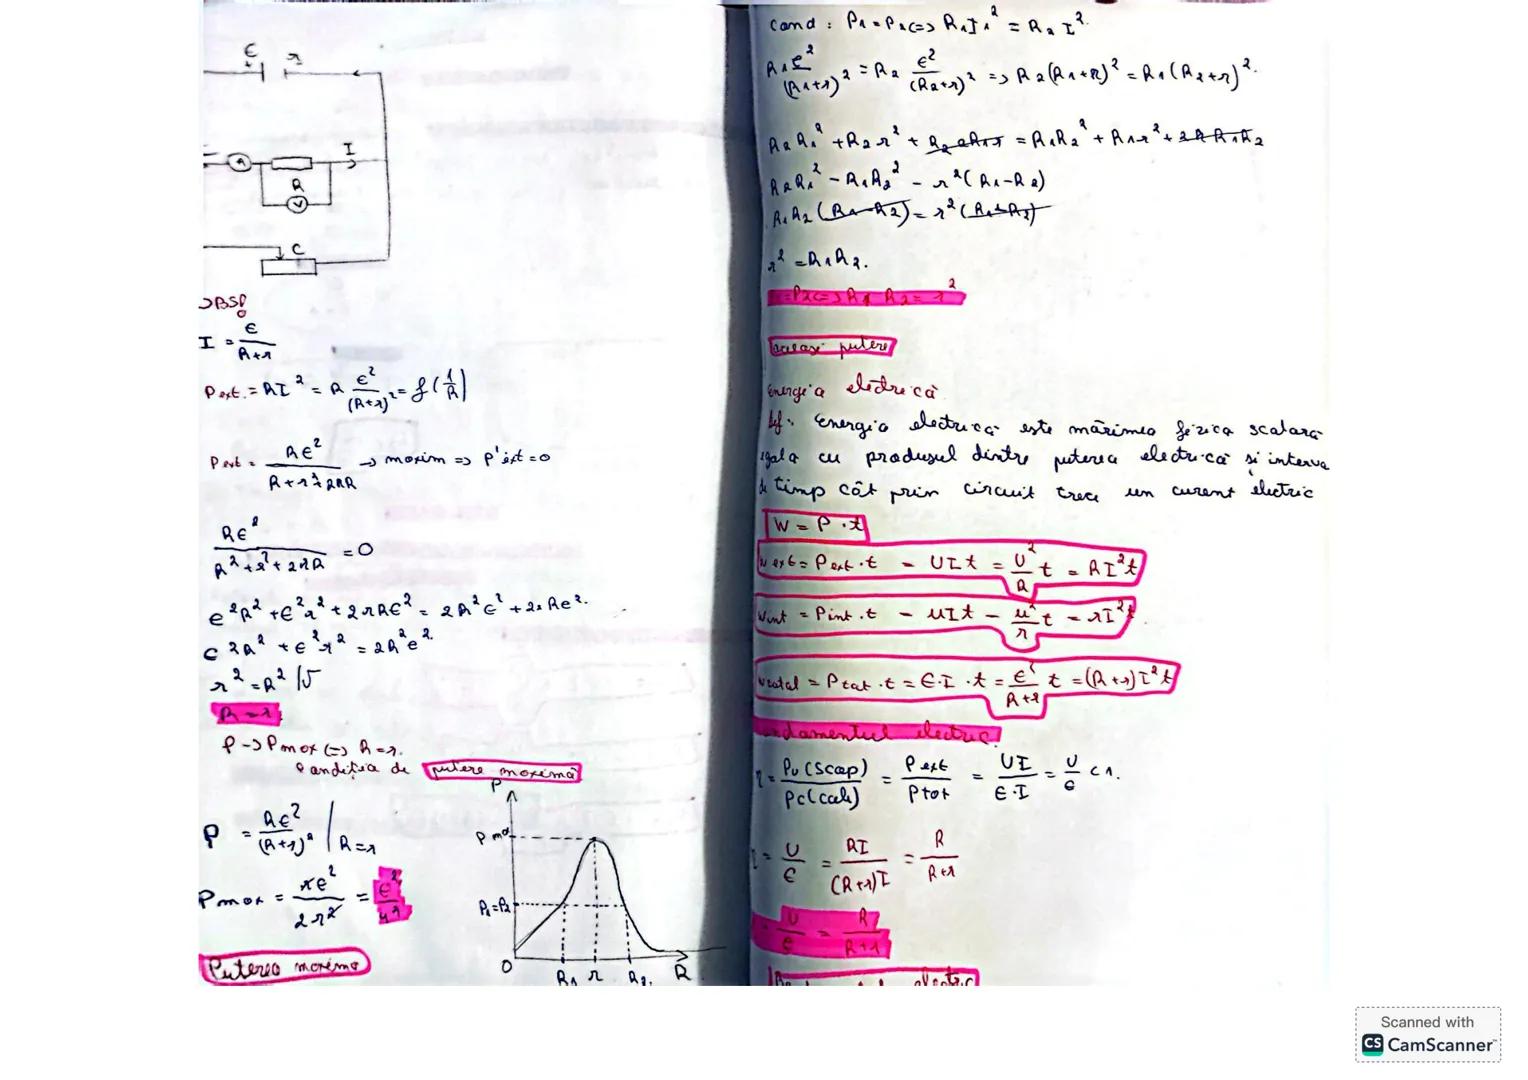 ε r
I
R
V
C
OBS!
I = ε / R+r
Pext. = RI² = R ε² / (R+r)² = f(1/R)
Pext = Rε² / R+r²+2rR → maxim => P'ext = 0
Rε² / R²+r²+2rR = 0
ε²R² + ε²r² + 2rRε² = 2R²ε² + 2rRε².
ε²R² + ε²r² = 2R²ε².
r² = R² |√
R = r
P → Pmax (=) R = r.
Condiția de putere maximă
P = Rε² / (R+r)² | R=r
Pmax = rε² / 2r² = ε² / 4r
Puterea maximă
P
P max
P₁=P₂
O R₁ r R₂. R
Cand : P₁ = P₂ <=> R₁I₁² = R₂I².
R₁ε² / (R₁+r)² = R₂ ε² / (R₂+r)² => R₂(R₁+r)² = R₁(R₂+r)².
R₂R₁² + R₂r² + R₂2R₁r = R₁R₂² + R₁r² + 2rR₁R₂
R₂R₁² - R₁R₂² - r²(R₁-R₂)
R₁R₂(R₁-R₂) = r²(R₁-R₂)
r² = R₁R₂.
=P2<=>R₁ R₂ = r²
aceeasi putere
Energia electrică
Def: Energia electrica este mărimea fizica scalară
egala cu produsul dintre puterea electrică si interva
de timp cât prin circuit trece un curent electric
W = P·t
Wext = Pext·t - UIt = U²/R t = RI²t
Wint = Pint·t - uIt - u²/r t = rI²t
Wtotal = Ptot·t = ε·I·t = ε²/R+r t = (R+r)I²t
Randamentul electric.
η = Pu (Scop) / Pc (cali) = Pext / Ptot = UI / ε·I = U/ε < 1.
η = U/ε = RI / (R+r)I = R / R+r
= U/ε = R / R+r
electric
Scanned with
CS CamScanner